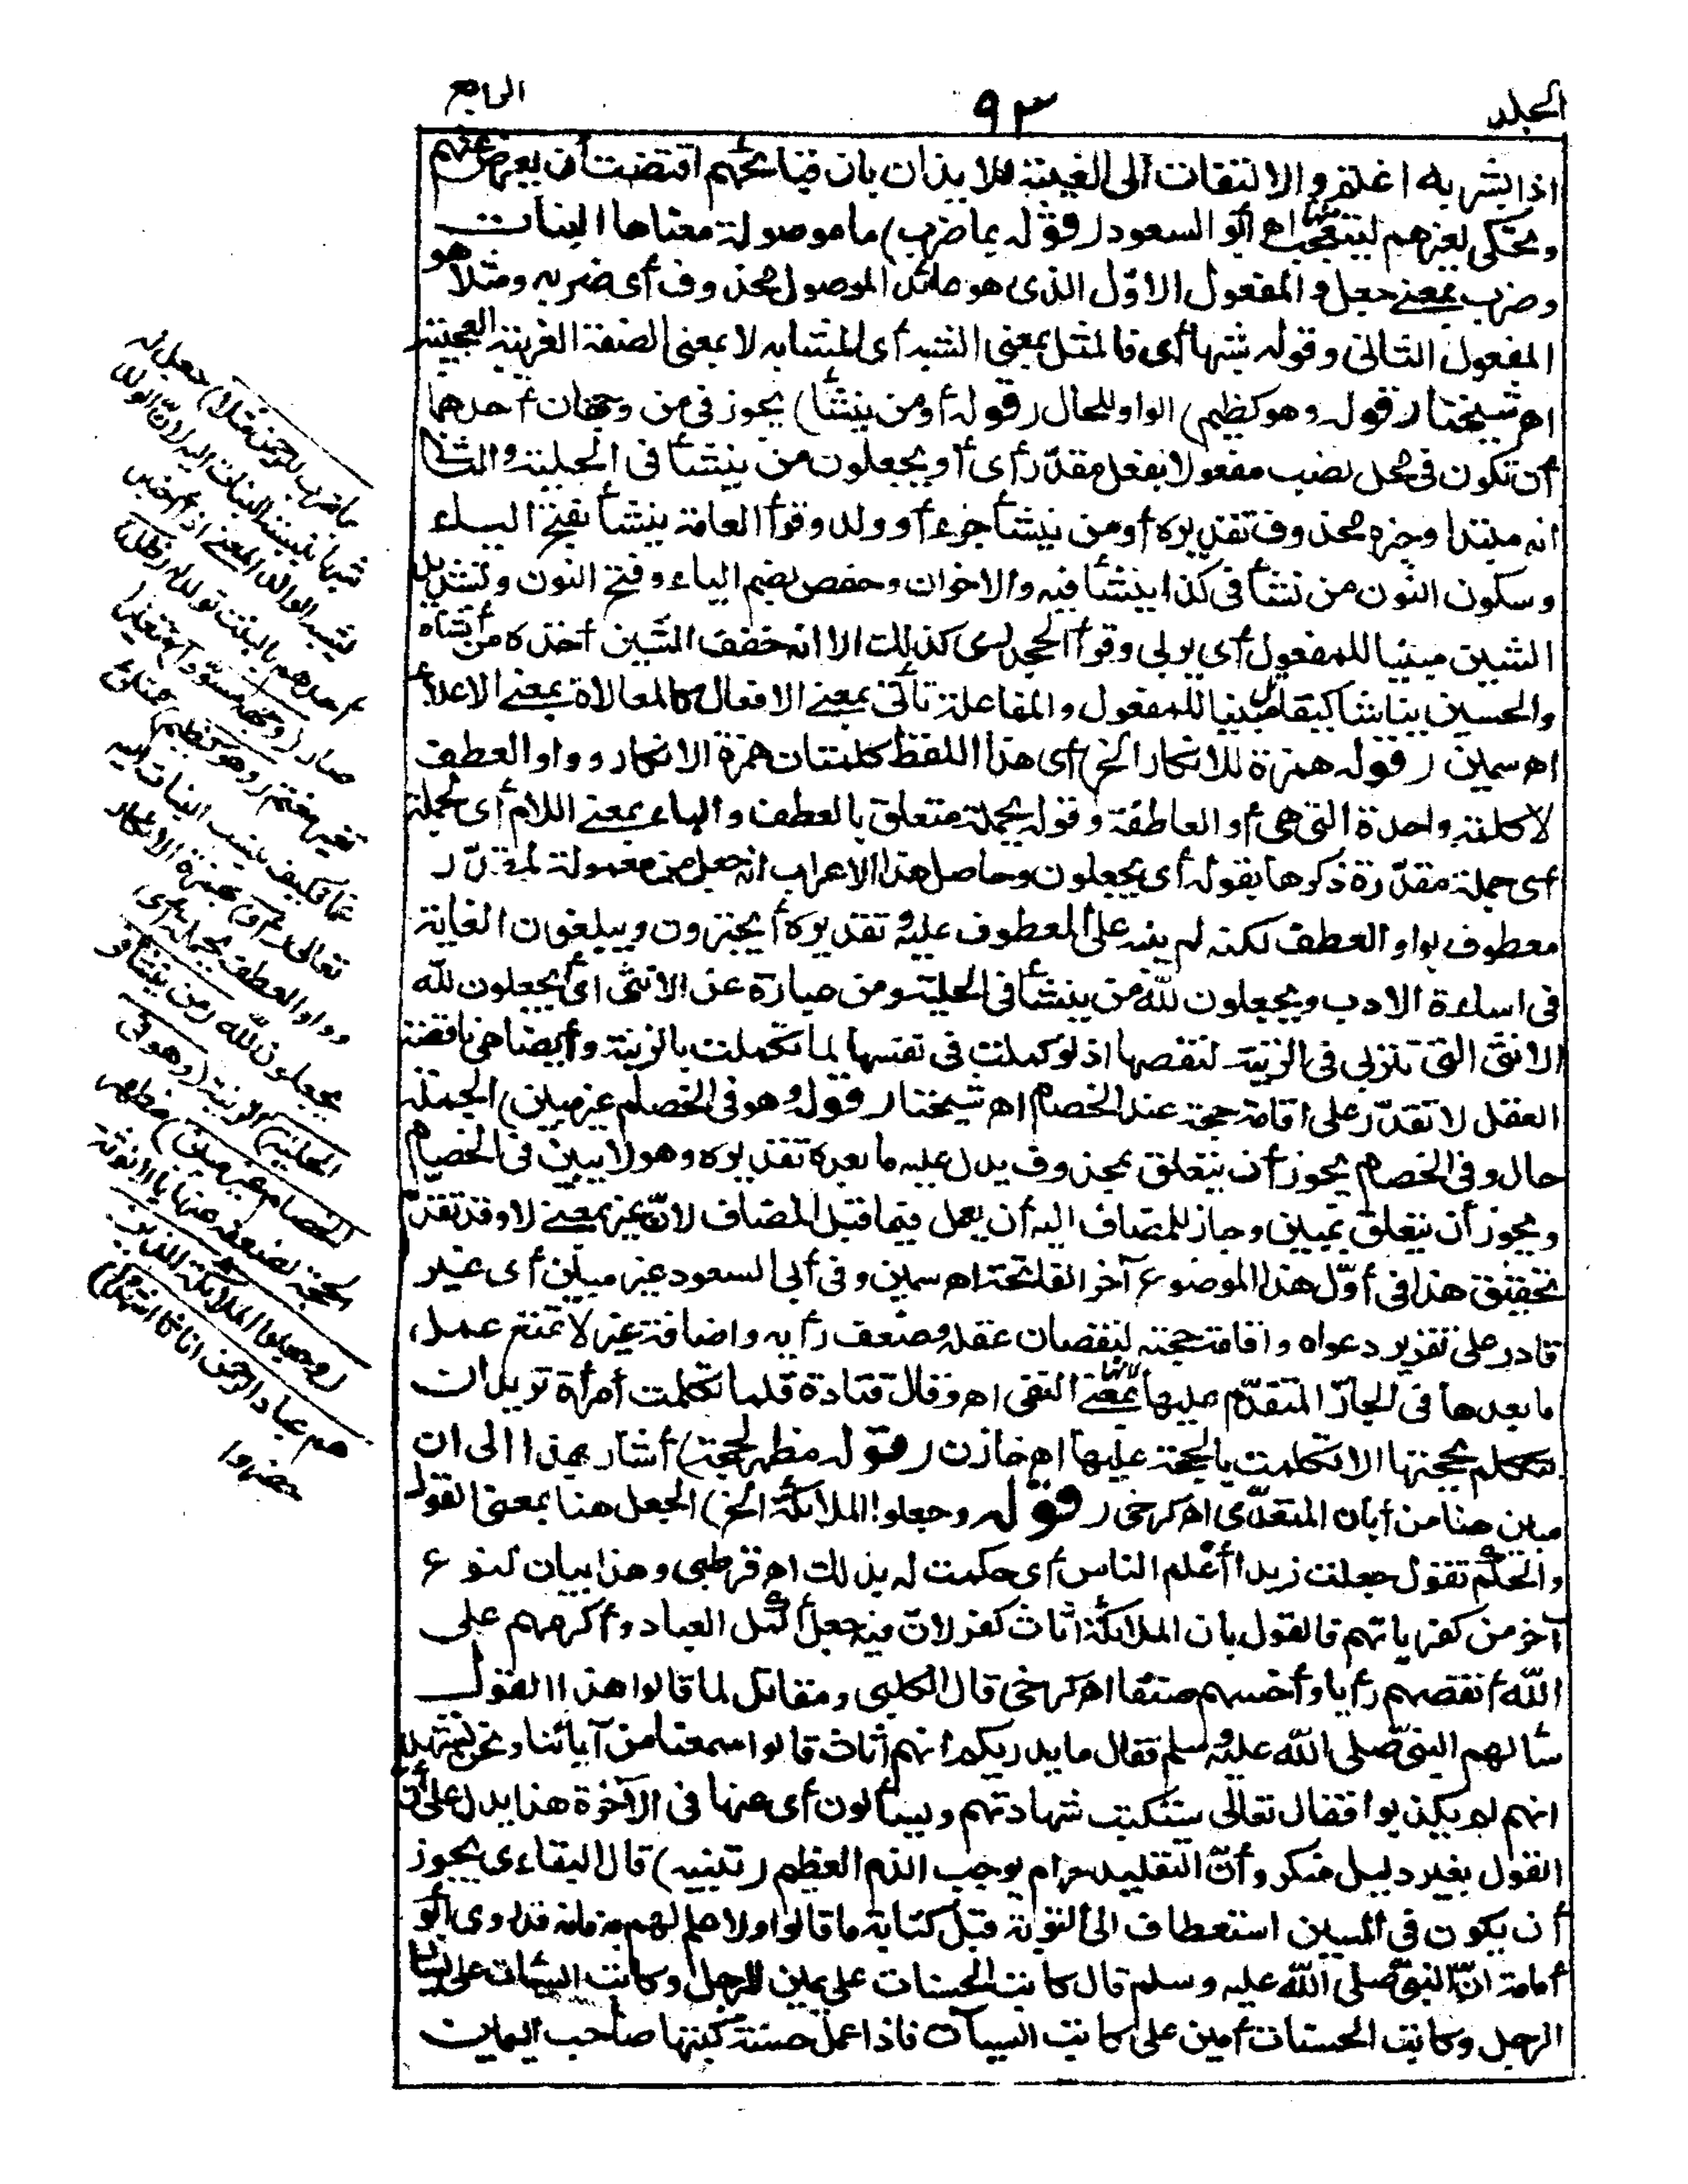 الجلد
٩٣
الرابع
اذا بشر به اغتم والالتفات الى الغيبة للايذان بان قبائحهم اقتضت أن يعرض عنهم
وتحكى لغيرهم ليتعجب منها اهـ أبو السعود (قوله بما ضرب) ما موصولة معناها البنات
وضرب بمعنى جعل والمفعول الاوّل الذى هو عائد الموصول محذوف أى ضربه ومثلا هو
المفعول الثانى وقوله شبها أى فالمثل بمعنى الشبه أى المشابه لا بمعنى الصفة الغريبة العجيبة
اهـ شيخنا (قوله وهو كظيم) الواو للحال (قوله أومن ينشأ) يجوز فى من وجهان أحدهما
أن تكون فى محل نصب مفعولا بفعل مقدّر أى أو يجعلون من ينشأ فى الحلية والثانى
انه مبتدا وخبره محذوف تقديره أو من ينشأ جزء أو ولد وقرأ العامة ينشأ بفتح الياء
وسكون النون من نشأ فى كذا ينشأ فيه والاخوان وحفص بضم الياء وفتح النون وتشديد
الشين مبنيا للمفعول أى يربى وقرأ الجحدرى كذلك الا انه خفف الشين أخذه من أنشأه
والحسين يناشأ كيقاتل مبنيا للمفعول والمفاعلة تأتى بمعنى الافعال كالمعالاة بمعنى الاعلاء
اهـ سمين (قوله همزة للانكار الخ) أى هذا اللفظ كلمتان همزة الانكار وواو العطف
لا كلمة واحدة التى هى أو العاطفة وقوله بجملة متعلق بالعطف والباء بمعنى اللام أى لجملة
أى جملة مقدّرة ذكرها بقوله أى يجعلون وحاصل هذا الاعراب انه جعل من معمولة لمقدّر
معطوف بواو العطف لكنه لم ينبه على المعطوف عليه وتقديره أيجترؤن ويبلغون الغاية
فى اساءة الادب ويجعلون لله من ينشأ فى الحلية ومن عبارة عن الانثى اى أيجعلون لله
الانثى التى تتربى فى الزينة لنقصها اذ لو كملت فى نفسها لما تكملت بالزينة وأيضا هى ناقصة
العقل لا تقدّر على اقامة حجة عند الخصام اهـ شيخنا (قوله وهو فى الخصام غير مبين) الجملة
حال وفى الخصام يجوز أن يتعلق بمحذوف يدل عليه ما بعده تقديره وهو لا يبين فى الخصام
ويجوز أن يتعلق بمبين وجاز للمضاف اليه أن يعمل فيما قبل المضاف لانّ غير بمعنى لا وقد تقدّم
تحقيق هذا فى أوّل هذا الموضوع آخر الفاتحة اهـ سمين وفى أبى السعود غير مبين أى غير
قادر على تقرير دعواه واقامة حجته لنقصان عقله وضعف رأيه واضافة غير لا تمنع عمل
ما بعدها فى الجارّ المتقدّم عليها لانها بمعنى النفى اهـ وقال قتادة قلما تكلمت أمرأة تريد ان
تتكلم بحجتها الا تكلمت بالحجة عليها اهـ خازن (قوله مظهر لحجة) أشار بهذا الى ان
مبين هنا من أبان المتعدّى اهـ كرخى (قوله وجعلوا الملائكة الخ) الجعل هنا بمعنى القول
والحكم تقول جعلت زيدا أعلم الناس أى حكمت له بذلك اهـ قرطبى وهذا بيان لنوع
آخر من كفرياتهم فالقول بان الملائكة أناث كفر لانّ فيه جعل أكمل العباد وأكرمهم على
الله أنقصهم رأيا وأخسهم صنفا اهـ كرخى قال الكلبى ومقاتل لما قالوا هذا القول
سألهم النبىّ صلى الله عليه وسلم فقال ما يدريكم انهم أناث قالوا سمعنا من آبائنا ونحن نشهد
انهم لم يكذبوا فقال تعالى ستكتب شهادتهم ويسألون أى عنها فى الآخرة هذا يدل على أنّ
القول بغير دليل منكر وأنّ التقليد حرام يوجب الذم العظيم (تنبيه) قال البقاعى يجوز
أن يكون فى السين استعطاف الى التوبة قبل كتابة ما قالوا ولا علم لهم به فانه قد روى أبو
أمامة انّ النبىّ صلى الله عليه وسلم قال كاتب الحسنات على يمين الرجل وكاتب السيئات على يسار
الرجل وكاتب الحسنات أمين على كاتب السيآت فاذا عمل حسنة كتبها صاحب اليمين
ما ضرب للرحمن مثلا) جعل له
شبها بنسبة البنات اليه لانّ الولد
يشبه الوالد المعنى اذا أخبر
أحدهم بالبنت تولد له (ظل)
صار (وجهه مسودّا) متغيرا
تغير مغتم (وهو كظيم) ممتلئ
غما فكيف ينسب البنات اليه
تعالى (أو) همزة الانكار
وواو العطف بجملة أى
يجعلون لله (من ينشأ فى
الحلية) الزينة (وهو فى
الخصام غير مبين) مظهر
لحجة لضعفه عنها بالانوثة
(وجعلوا الملائكة الذين
هم عباد الرحمن اناثا أشهدوا)
حضروا